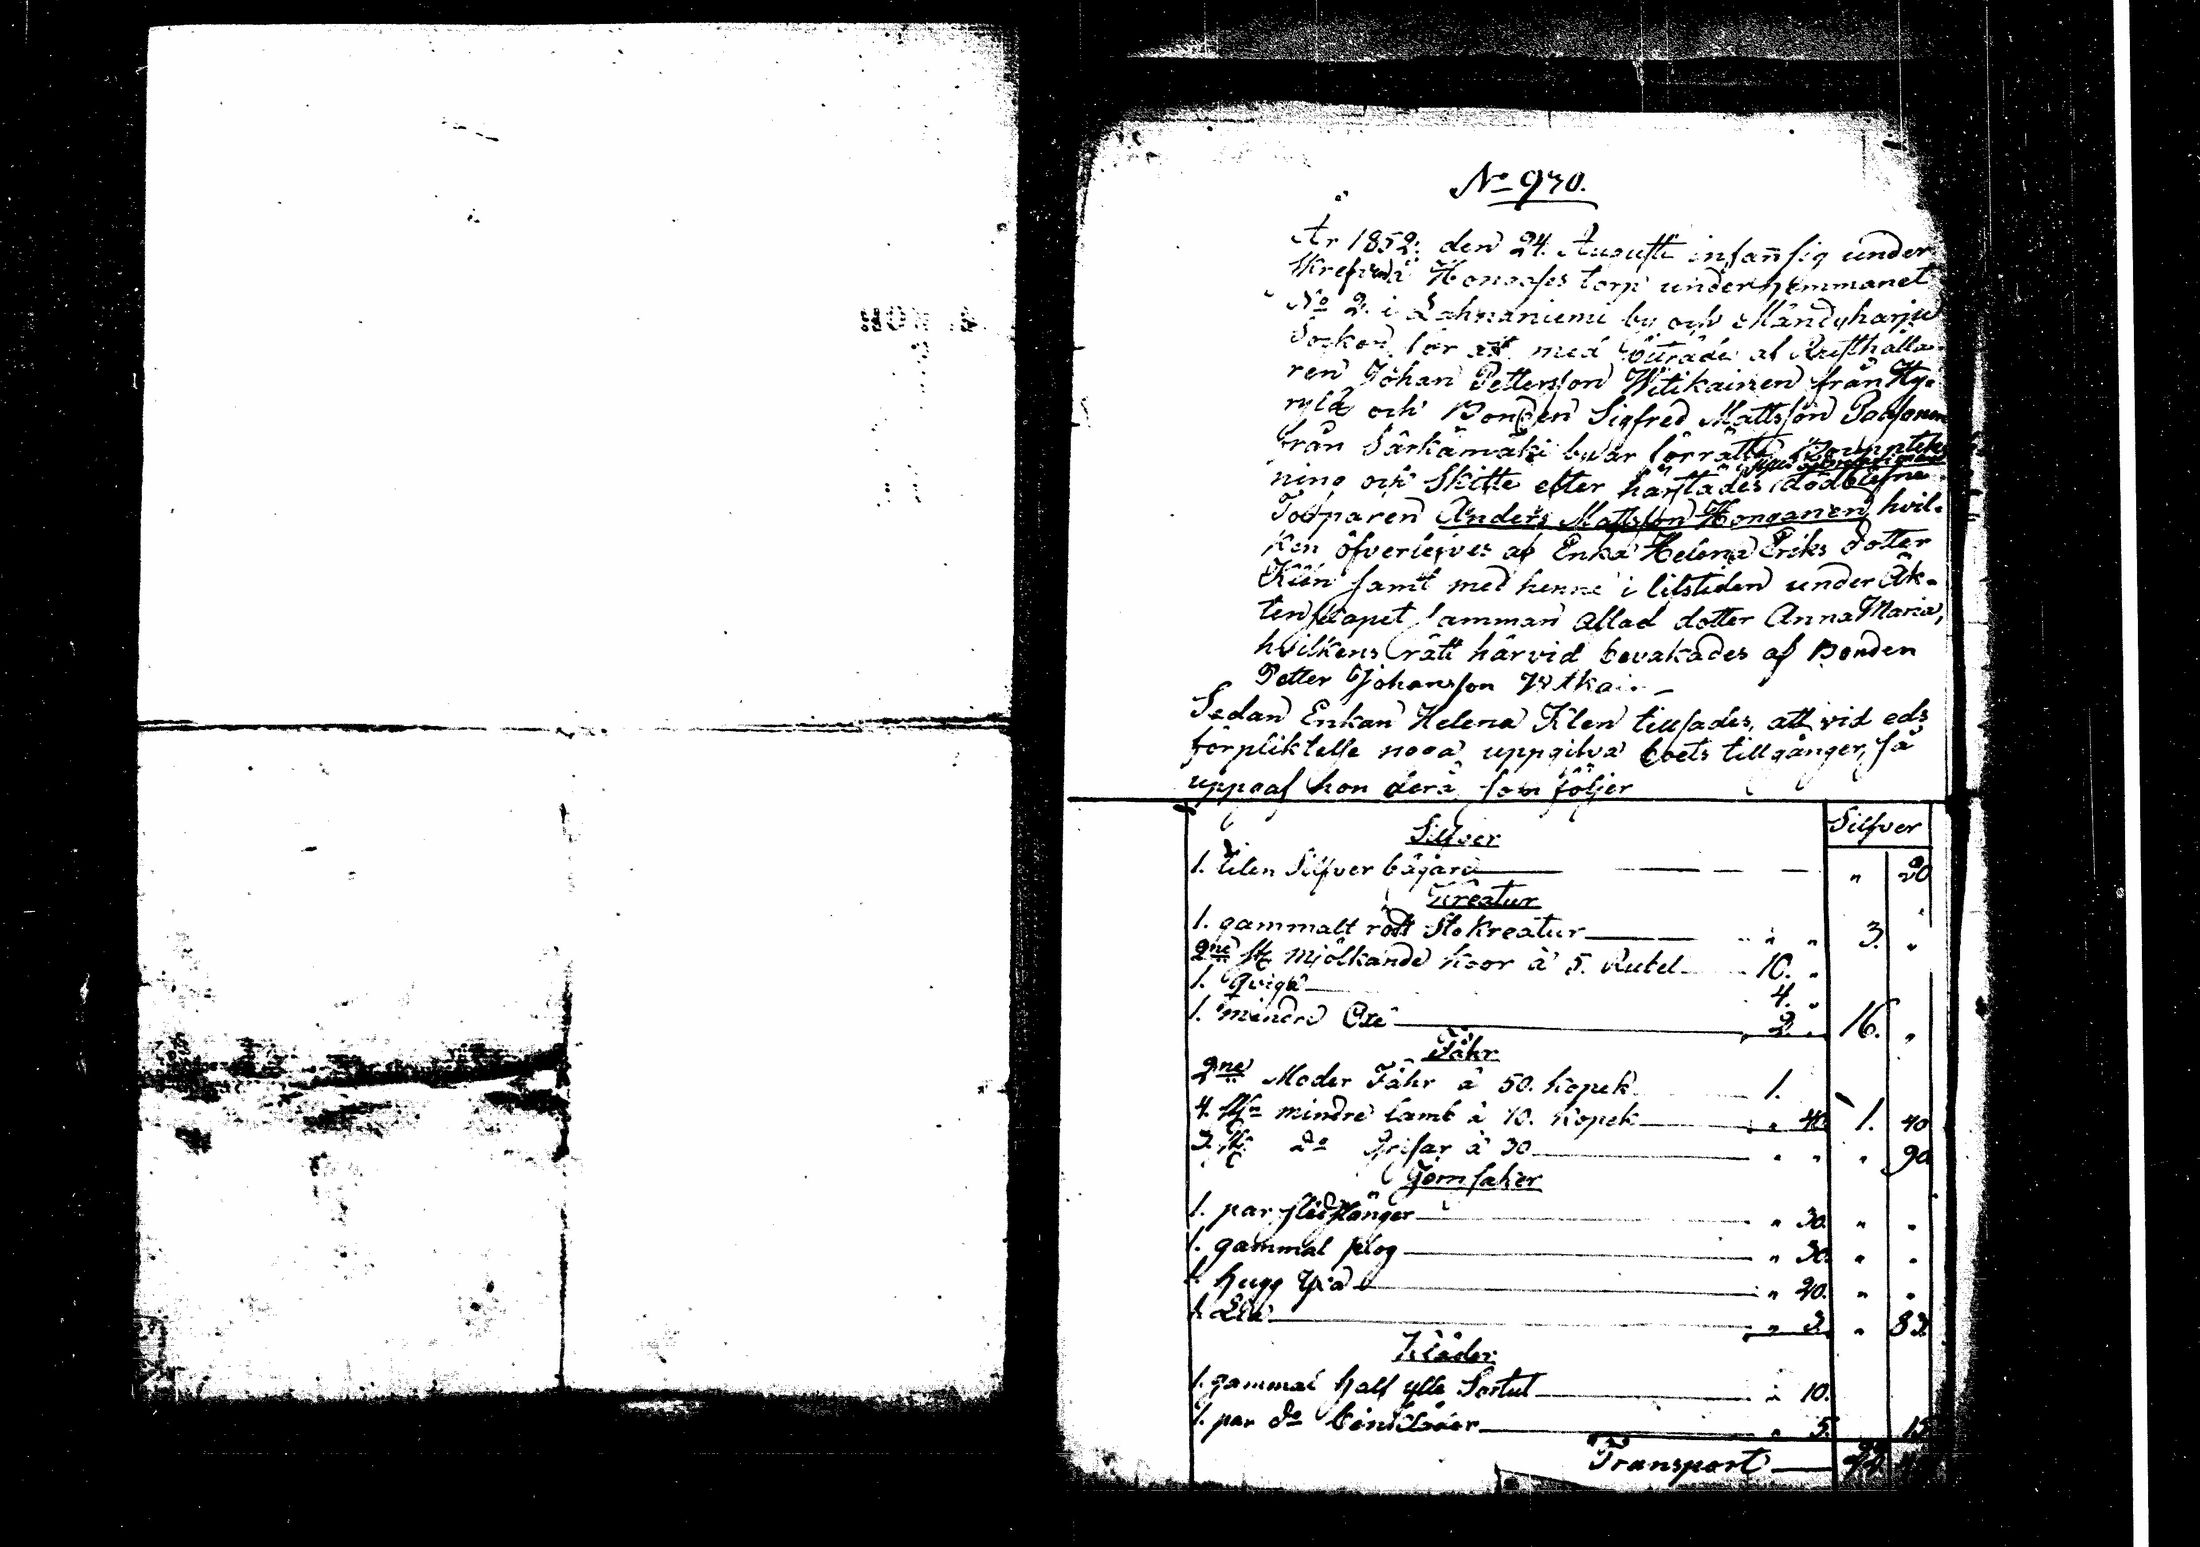 No 930.
År 1852. den 24. Augusti infann sig under
skrefven i Hongases torp under hemmanet
No 2. i Lahnaniemi by och Mändyharju
Socken för att med biträde af Rusthålla-
ren Johan Pettersson Witikainen från Hy-
rylä och Bonden Sigfred Mattsson Paasonen
från Särkämäki byar förrätta Boupptek-
ning och Skifte efter härstädes dödblefne
Torparen Anders Mattsson Honganen, hvil-
ken öfverlefves af Enka Helena Eriks dotter
Kilén samt med henne i lifstiden under Äk-
tenskapet samman aflad dotter Anna Maria,
hvilkens rätt härvid bevakades af Bonden
Petter Johansson
Sedan Enkan Helena Kilen tillsades, att vid eds
förpliktelse noga uppgifva boets tillgånger, så
uppgaf hon dera som följer
Silfver
Silfver
1. liten Silfver bägare " 20
Kreatur
1. gammalt rödt Stokreatur " " 3. "
2ne st. mjölkande koor à 5. Rubel 10. "
1. qviga 4. "
1. mindre Oxe 2. " 16. "
Fåhr
2ne Moder Fåhr à 50. kopek 1.
4. st. mindre lamb à 10. kopek " 40. 1. 40
3. st. do Grisar à 30 " " " 90
Jernsaker
1. par " 30. " "
1. gammal plog " 30. " "
1. hugg Yxa " 20. " "
1. Lia " 3. " 83.
Kläder
1. gammal half ylle Sortut " 10.
1. par do benkläder " 5. 15
Transport